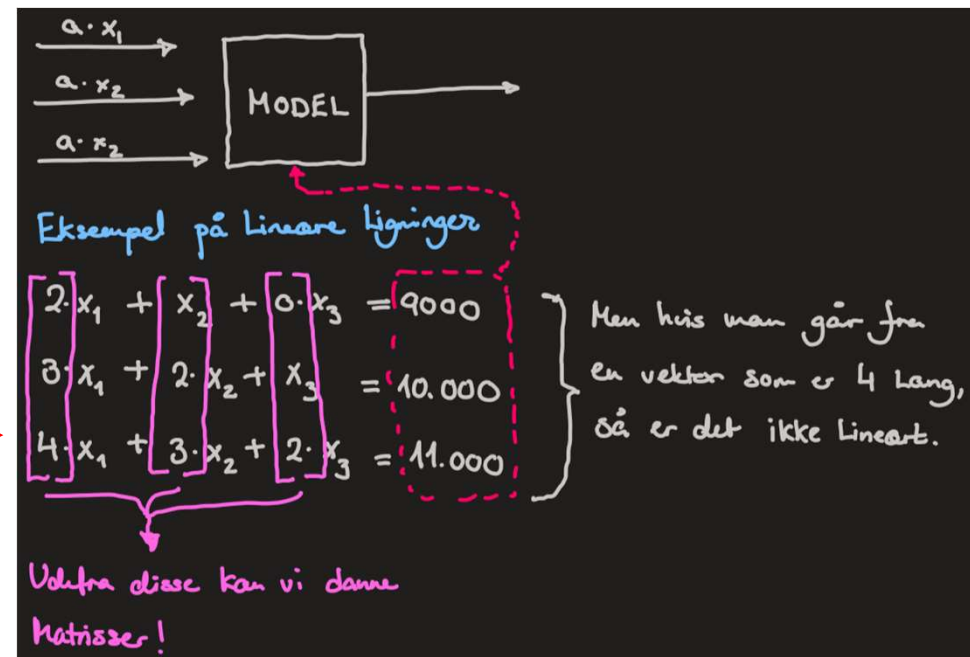 a · x₁
a · x₂
a · x₂
MODEL
Eksempel på Lineare Ligninger
2· x₁ + x₂ + 0· x₃ = 9000
3· x₁ + 2· x₂ + x₃ = 10.000
4· x₁ + 3· x₂ + 2· x₃ = 11.000
Men hvis man går fra
en vektor som er 4 Lang,
så er det ikke Lineært.
Udefra disse kan vi danne
Matrisser!